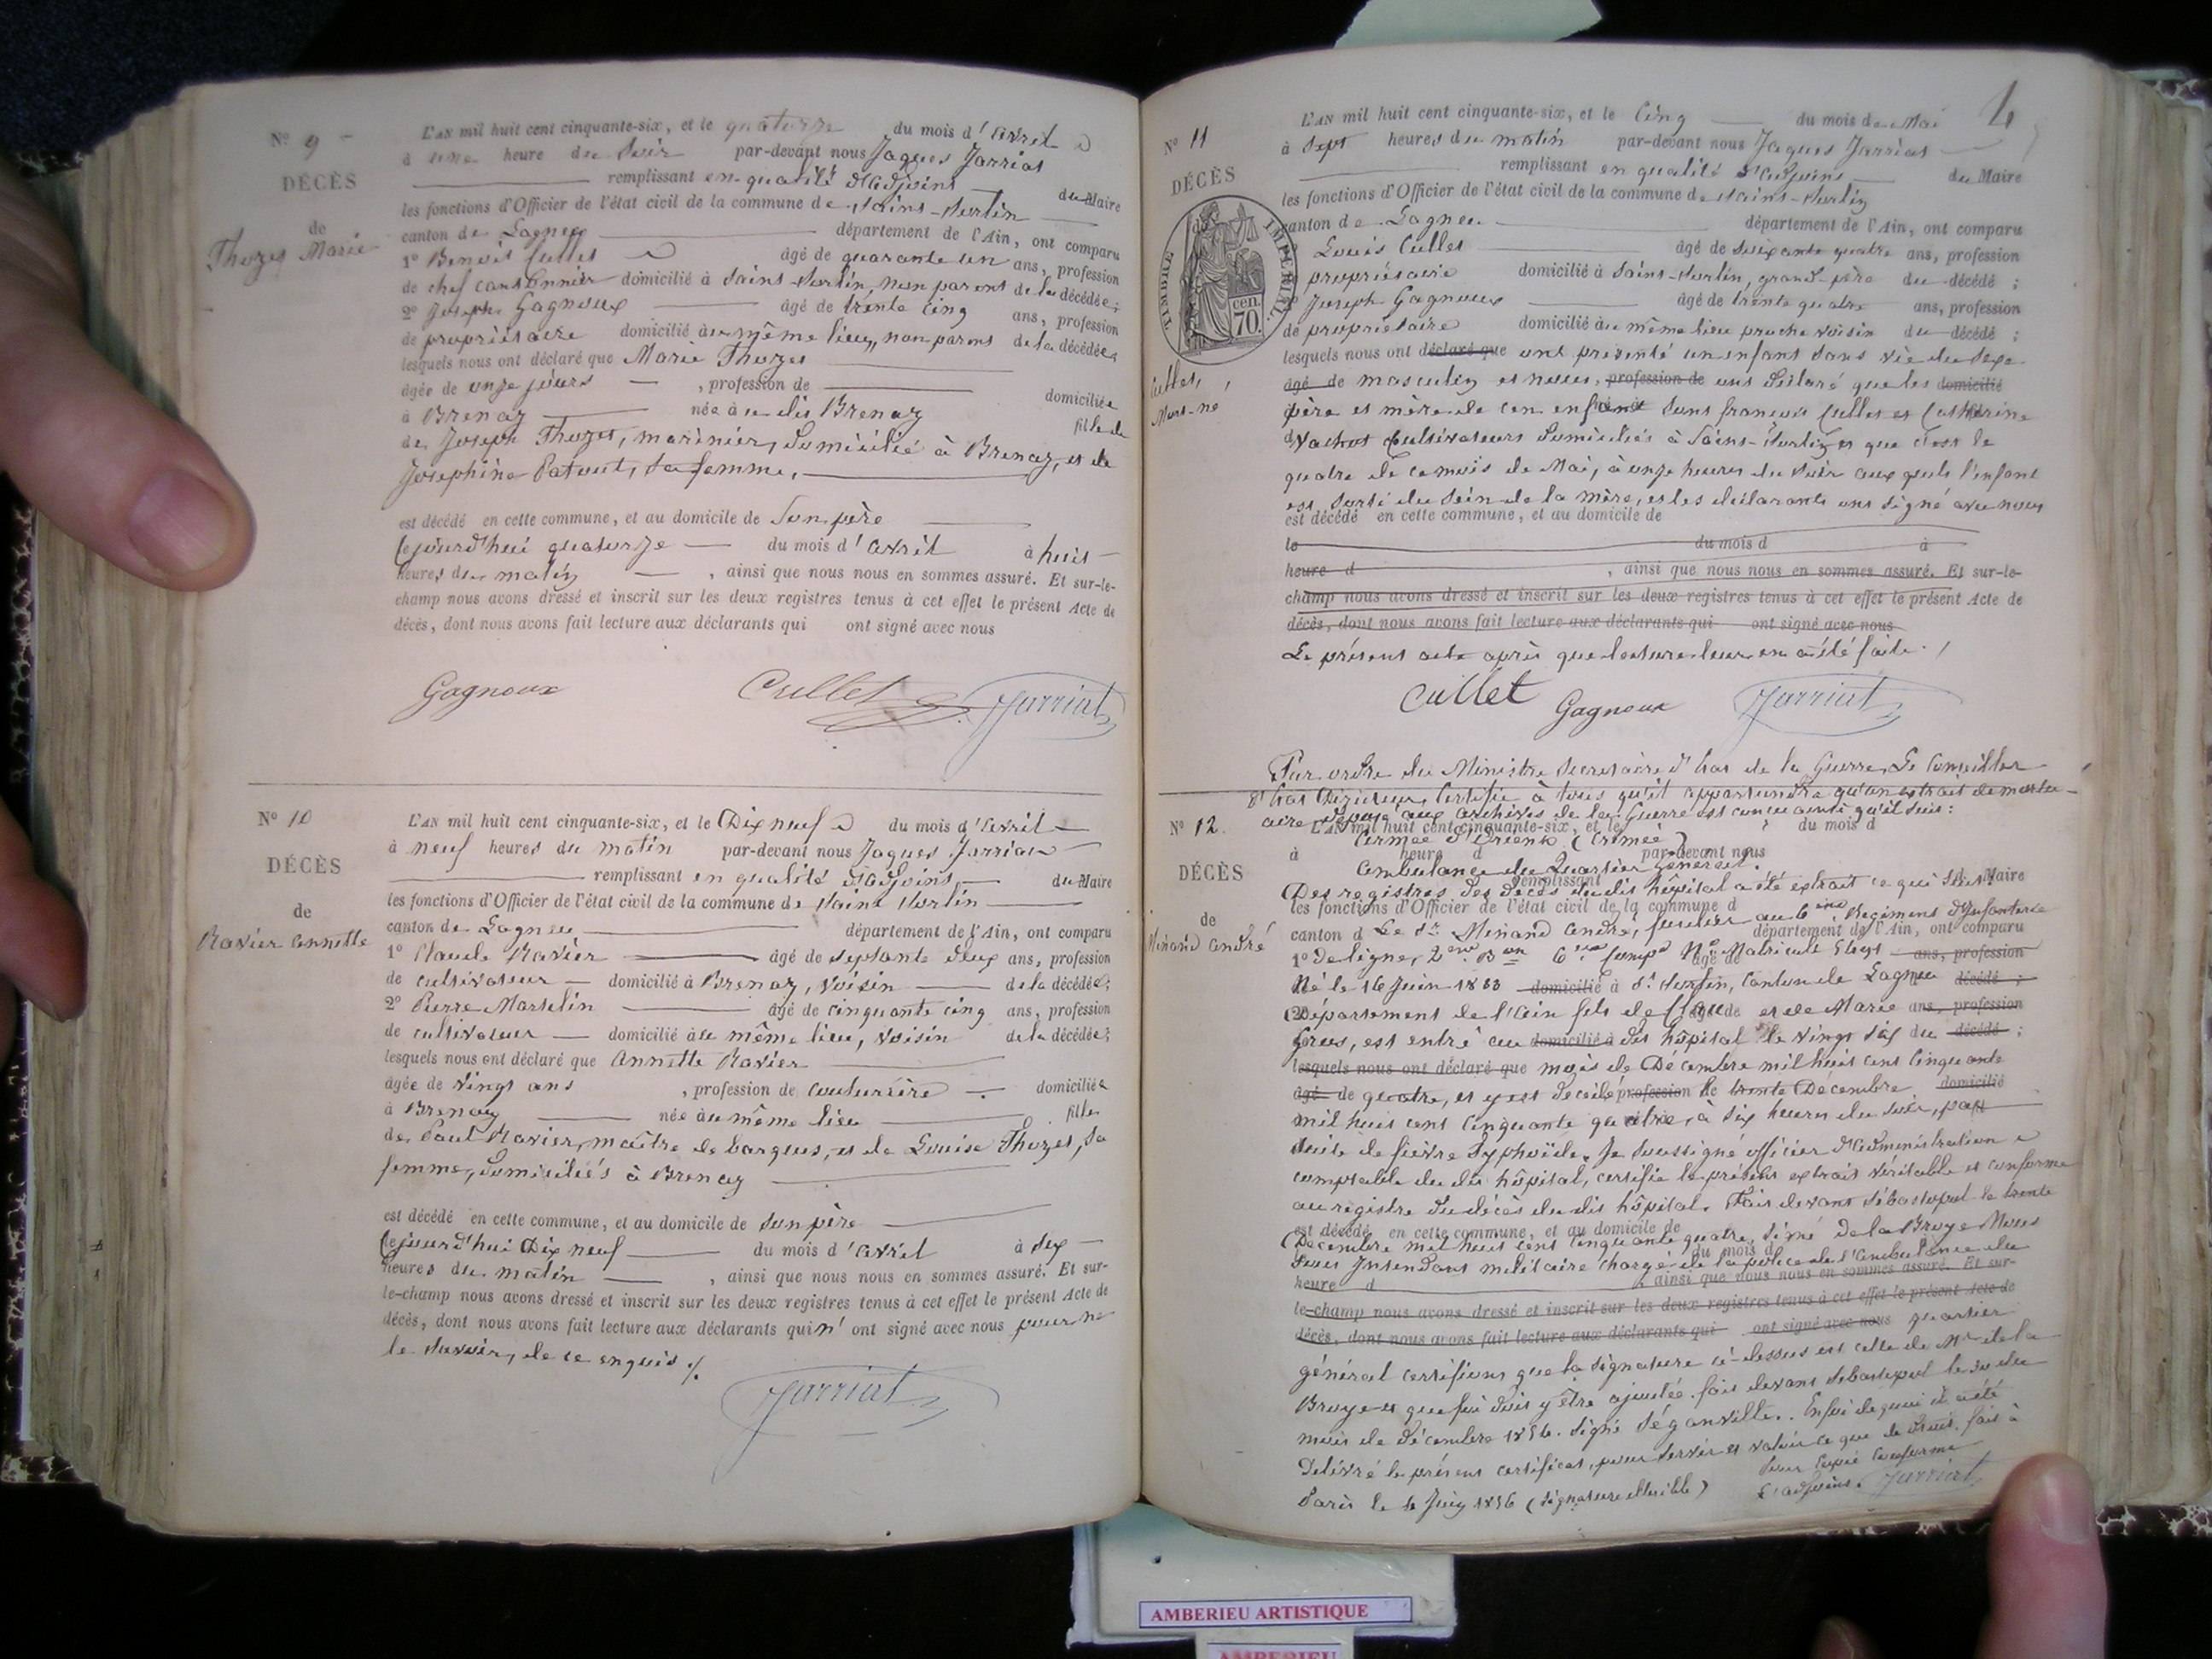 N° 9
DÉCÈS
de
Thozet Marie
L'AN mil huit cent cinquante-six, et le quatorze du mois d'Avril
à une heure du Soir par-devant nous Jaques Jarriat
remplissant en qualité d'Adjoint du Maire
les fonctions d'Officier de l'état civil de la commune de Saint-Sorlin
canton de Lagnieu département de l'Ain, ont comparu
1° Benoit Cullet âgé de quarante un ans, profession
de chef cantonnier domicilié à Saint-Sorlin, non parent de la décédée;
2° Joseph Gagnoux âgé de trente cinq ans, profession
de propriétaire domicilié au même lieu, non parent de la décédée,
lesquels nous ont déclaré que Marie Thozet
âgée de onze jours , profession de domiciliée
à Brenaz née à u dit Brenaz fille de
de Joseph Thozet, marinier, domicilié à Brenaz, et de
Josephine Patout, sa femme,
est décédé en cette commune, et au domicile de Son père
Cejourd'hui quatorze du mois d'Avril à huit
heures du matin , ainsi que nous nous en sommes assuré. Et sur-le-
champ nous avons dressé et inscrit sur les deux registres tenus à cet effet le présent Acte de
décès, dont nous avons fait lecture aux déclarants qui ont signé avec nous
Gagnoux Cullet Jarriat
N° 10
DÉCÈS
de
Ravier Annette
L'AN mil huit cent cinquante-six, et le Dix neuf du mois d'Avril
à neuf heures du matin par-devant nous Jaques Jarriat
remplissant en qualité d'Adjoint du Maire
les fonctions d'Officier de l'état civil de la commune de Saint Sorlin
canton de Lagnieu département de l'Ain, ont comparu
1° Claude Ravier âgé de septante deux ans, profession
de cultivateur domicilié à Brenaz, voisin de la décédée;
2° Pierre Marselin âgé de cinquante cinq ans, profession
de cultivateur domicilié au même lieu, voisin de la décédée;
lesquels nous ont déclaré que Annette Ravier
âgée de vingt ans , profession de couturière domiciliée
à Brenaz née au même lieu fille
de Paul Ravier, maître de barques, et de Louise Thozet, sa
femme, domiciliés à Brenaz
est décédé en cette commune, et au domicile de Son père
Cejourd'hui Dix neuf du mois d'Avril à six
heures du matin , ainsi que nous nous en sommes assuré. Et sur-
le-champ nous avons dressé et inscrit sur les deux registres tenus à cet effet le présent Acte de
décès, dont nous avons fait lecture aux déclarants qui n'ont signé avec nous pour ne
le savoir, de ce enquis ./.
Jarriat
4
N° 11
DÉCÈS
de
TIMBRE IMPÉRIAL
70 cen.
Cullet,
Mort-né
L'AN mil huit cent cinquante-six, et le Cinq du mois de Mai
à Sept heures du matin par-devant nous Jaques Jarriat
remplissant en qualité d'Adjoint du Maire
les fonctions d'Officier de l'état civil de la commune de Saint-Sorlin
canton de Lagnieu département de l'Ain, ont comparu
Louis Cullet âgé de soixante quatre ans, profession
propriétaire domicilié à Saint-Sorlin, grand père du décédé ;
2° Joseph Gagnoux âgé de trente quatre ans, profession
de propriétaire domicilié au même lieu proche voisin du décédé ;
lesquels nous ont déclaré que ont présenté un enfant sans vie du sexe
âgé de masculin et nous, profession de ont déclaré que les domicilié
père et mère de cet enfant sont françois Cullet et Catherine
Vachot Cultivateurs domiciliés à Saint-Sorlin et que c'est le
quatre de ce mois de Mai, à onze heures du soir que l'enfant
est sorti du sein de la mère, et les déclarants ont signé avec nous
est décédé en cette commune, et au domicile de
le du mois d à
heure d , ainsi que nous nous en sommes assuré. Et sur-le-
champ nous avons dressé et inscrit sur les deux registres tenus à cet effet le présent Acte de
décès, dont nous avons fait lecture aux déclarants qui ont signé avec nous
Le présent acte après que lecture leur en a été faite. /
Cullet Gagnoux Jarriat
N° 12
DÉCÈS
de
Minand André
Par ordre du Ministre Secrétaire d'Etat de la Guerre, Le Conseiller
d'Etat Directeur, Certifie à tous qu'il appartiendra qu'un extrait de mortu-
aire déposé aux archives de la Guerre est conçu ainsi qu'il suit :
L'AN mil huit cent cinquante-six, et le du mois d
Armée d'Orient (Crimée)
à heure d par-devant nous
Ambulance du Quartier Général.
remplissant Maire
Des registres des décès du dit hôpital a été extrait ce qui suit :
les fonctions d'Officier de l'état civil de la commune d
canton d Le Sr Minand André, fusilier au 6ème Régiment d'Infanterie
département de l'Ain, ont comparu
1° de ligne, 2ème Bon 6ème Compie N° Matricule âgé de ans, profession
Né le 16 Juin 1833 domicilié à St Sorlin, Canton de Lagnieu décédé ;
2° Département de l'Ain fils de âgé de et de Marie ans, profession
est entré au domicilié à dit hôpital le vingt six du décédé ;
lesquels nous ont déclaré que mois de Décembre mil huit cent Cinquante
âgé de quatre, et y est décédé profession le trente Décembre domicilié
mil huit cent Cinquante quatre, à six heures du soir, par
suite de fièvre Typhoïde. Je soussigné officier d'Administration
comptable du dit hôpital, certifie le présent extrait véritable et conforme
au registre du décès du dit hôpital. Fait devant Sébastopol le trente
est décédé en cette commune, et au domicile de
Décembre mil huit cent Cinquante quatre, signé De la Broye Nous
du mois d
Sous Intendant militaire chargé de la police de l'Ambulance du
heure d , ainsi que nous nous en sommes assuré. Et sur-
le-champ nous avons dressé et inscrit sur les deux registres tenus à cet effet le présent Acte de
décès, dont nous avons fait lecture aux déclarants qui ont signé avec nous quartier
général certifions que la signature ci-dessus est celle de Mr de la
Broye et que foi doit y être ajoutée. fait devant Sébastopol le 30 du
mois de Décembre 1854. signé Séganville. En foi de quoi il a été
Délivré le présent certificat, pour servir et valoir ce que de droit. fait à
Paris le 6 Juin 1856 (signature illisible) Pour Copie Conforme
L'adjoint. Jarriat
AMBERIEU ARTISTIQUE
AMBERIEU